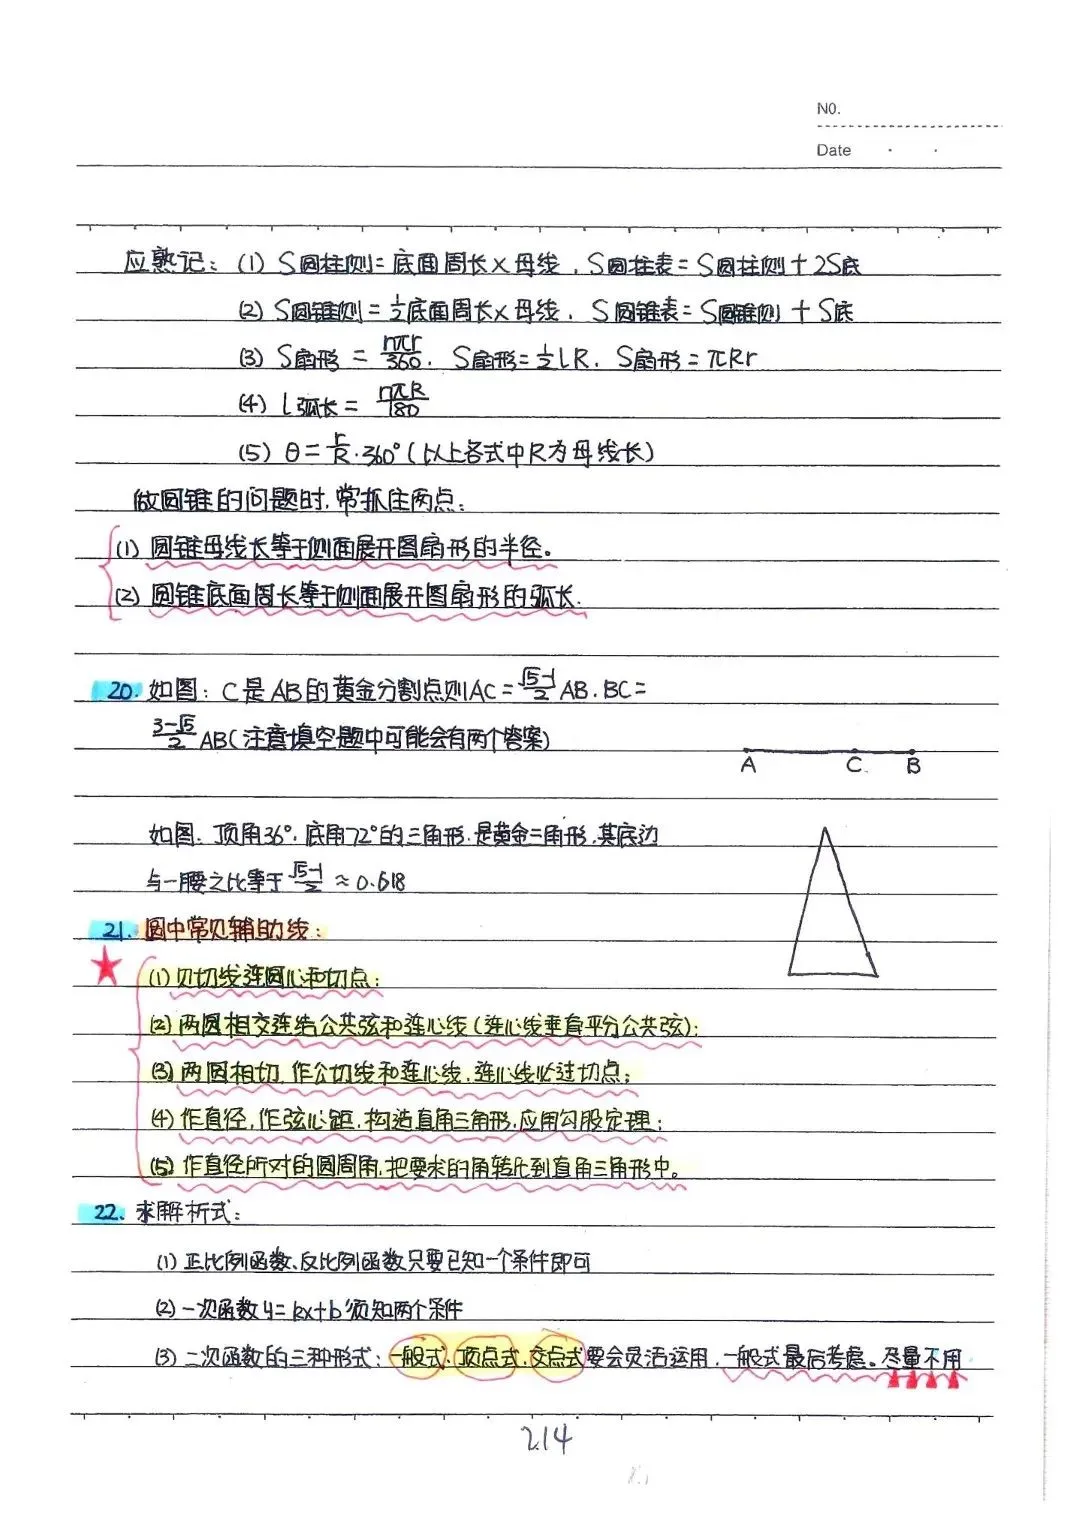 NO.
Date
应熟记：(1) S圆柱侧=底面周长×母线，S圆柱表=S圆柱侧+2S底
(2) S圆锥侧=½底面周长×母线，S圆锥表=S圆锥侧+S底
(3) S扇形=nπr/360，S扇形=½LR，S扇形=πRr
(4) L弧长=nπR/180
(5) θ=r/R·360°(以上各式中R为母线长)
做圆锥的问题时，常抓住两点：
(1) 圆锥母线长等于侧面展开图扇形的半径。
(2) 圆锥底面周长等于侧面展开图扇形的弧长.
20. 如图：C是AB的黄金分割点则AC=(√5-1)/2 AB，BC=
(3-√5)/2 AB(注意填空题中可能会有两个答案)
A C B
如图，顶角36°，底角72°的三角形，是黄金三角形，其底边
与一腰之比等于(√5-1)/2≈0.618
21. 圆中常见辅助线：
(1) 见切线连圆心和切点；
(2) 两圆相交连结公共弦和连心线(连心线垂直平分公共弦)；
(3) 两圆相切，作公切线和连心线，连心线必过切点；
(4) 作直径，作弦心距，构造直角三角形，应用勾股定理；
(5) 作直径所对的圆周角，把要求的角转化到直角三角形中。
22、求解析式：
(1) 正比例函数、反比例函数只要已知一个条件即可
(2) 一次函数y=kx+b须知两个条件
(3) 二次函数的三种形式：一般式、顶点式、交点式要会灵活运用，一般式最后考虑。尽量不用
214